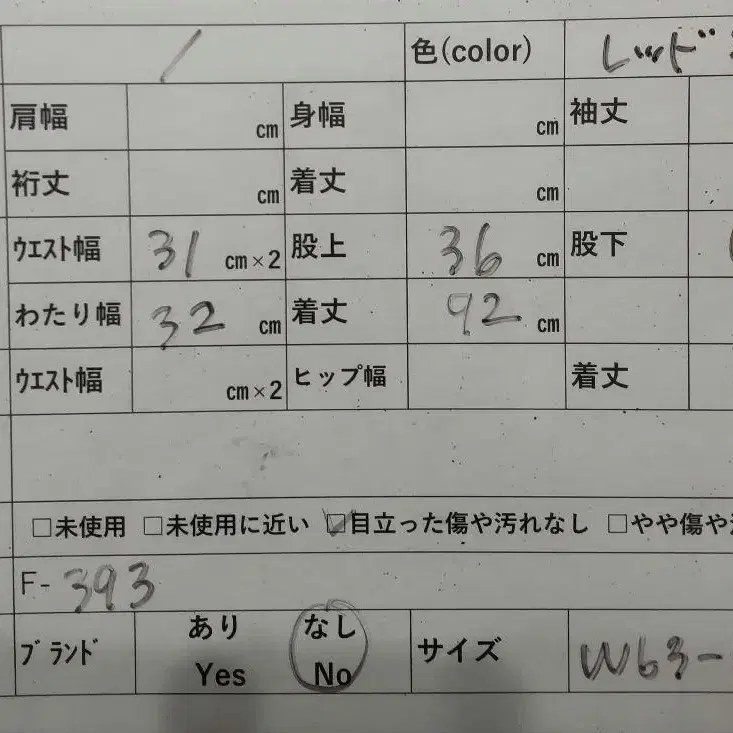 / 色(color) レッド
肩幅 cm 身幅 cm 袖丈
裄丈 cm 着丈 cm
ウエスト幅 31 cm×2 股上 36 cm 股下
わたり幅 32 cm 着丈 92 cm
ウエスト幅 cm×2 ヒップ幅 着丈
□未使用 □未使用に近い ☑目立った傷や汚れなし □やや傷や
F-393
ブランド あり Yes なし No サイズ W63-